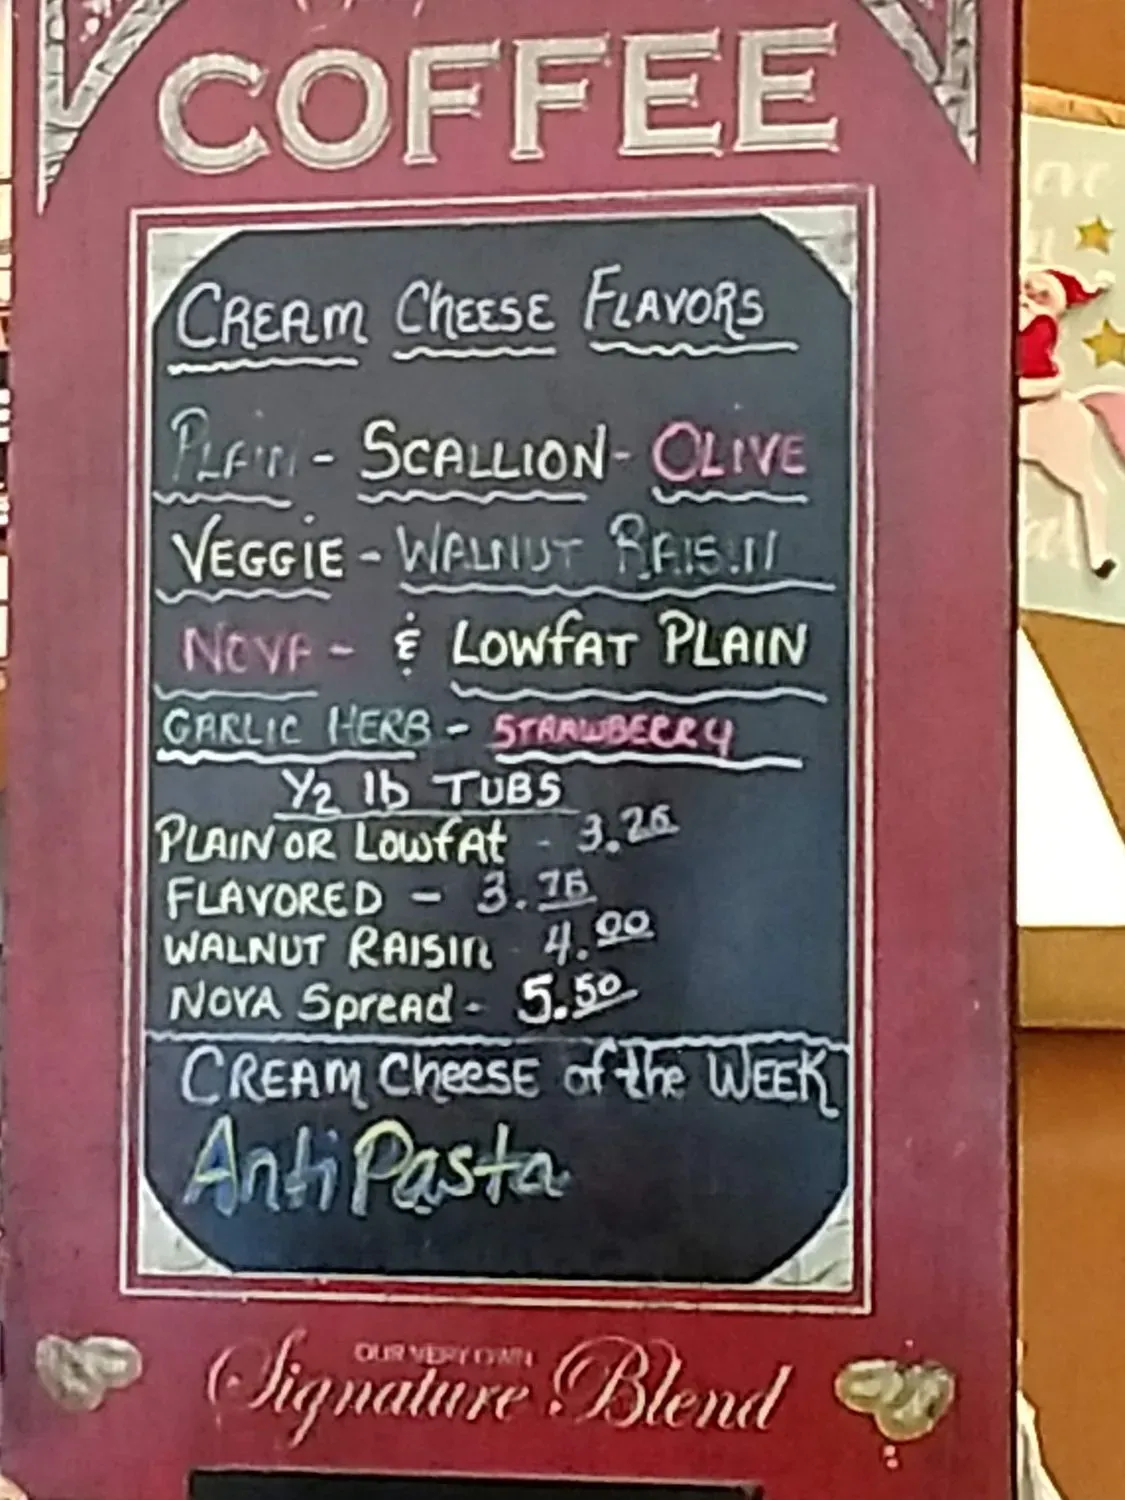 COFFEE
CREAM CHEESE FLAVORS
PLAIN - SCALLION - OLIVE
VEGGIE - WALNUT RAISIN
NOVA - & LOWFAT PLAIN
GARLIC HERB - STRAWBERRY
1/2 lb TUBS
PLAIN OR LOWfAt - 3.25
FLAVORED - 3.75
WALNUT RAISIN - 4.00
NOVA Spread - 5.50
CREAM CheeSE of the WEEK
AntiPasta
OUR VERY OWN
Signature Blend